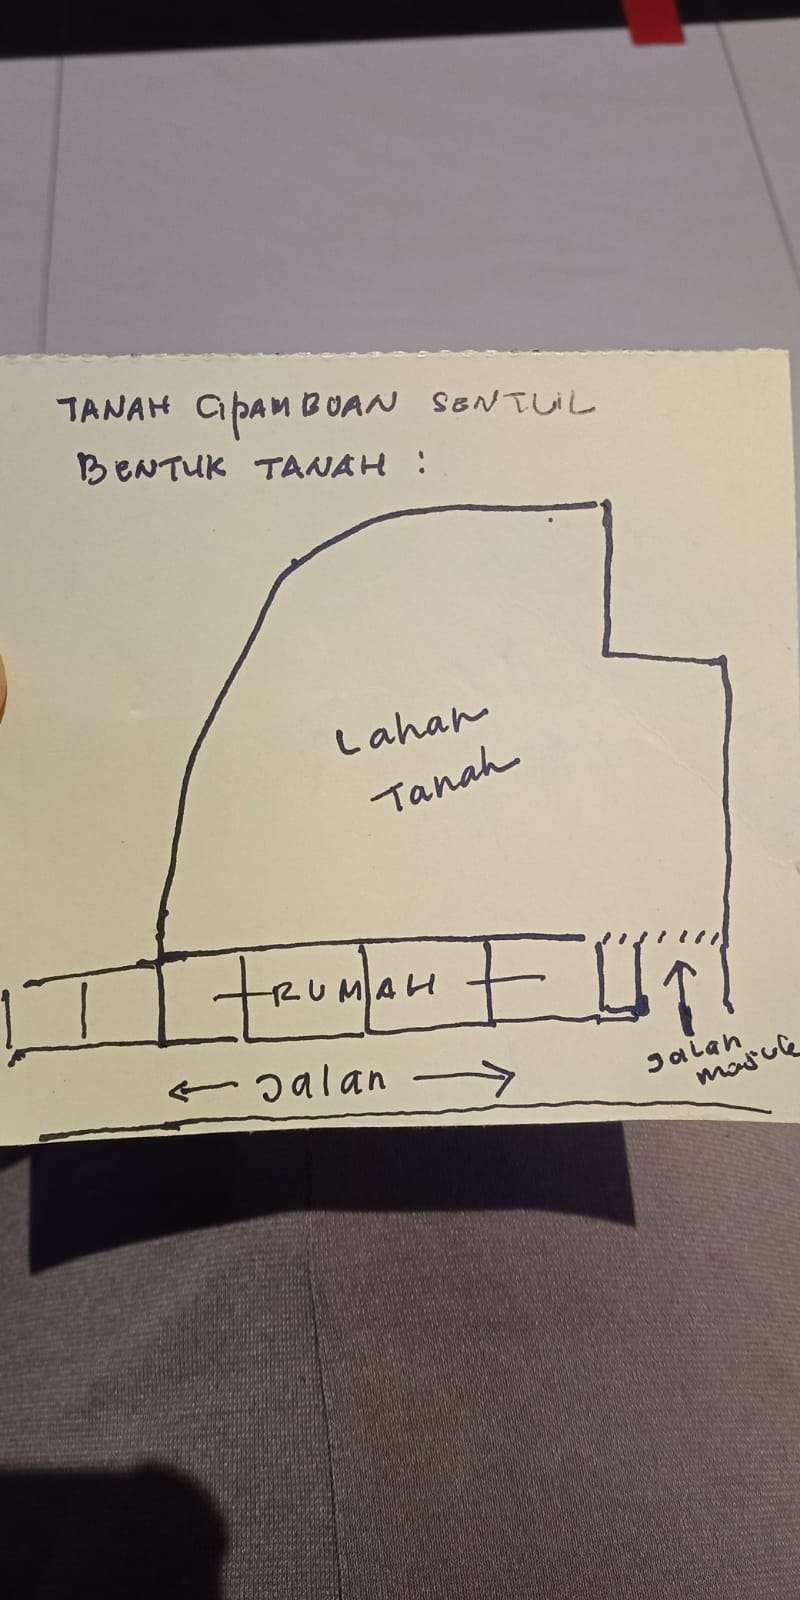 TANAH CIPAMBUAN SENTUL
BENTUK TANAH :
Lahan
Tanah
RUMAH
Jalan
Jalan
masuk